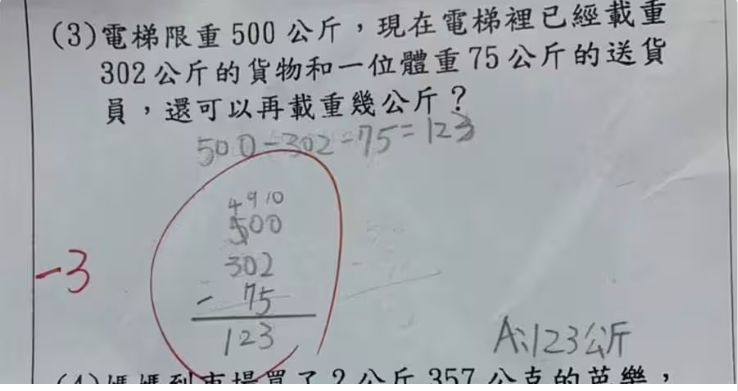 (3)電梯限重 500 公斤，現在電梯裡已經載重
302 公斤的貨物和一位體重 75 公斤的送貨
員，還可以再載重幾公斤？
500-302-75=123
4 9 10
500
302
-3
- 75
123
A:123公斤
(4)媽媽到市場買了 2 公斤 357 公克的芭樂，